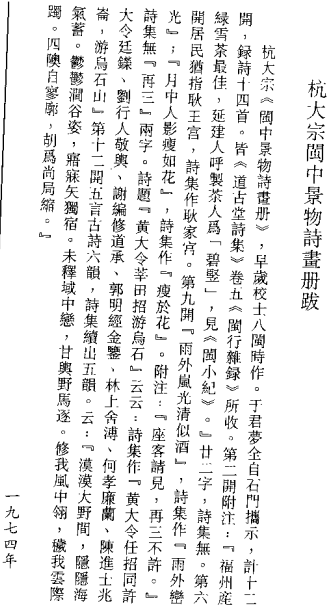 杭大宗閩中景物詩畫册跋
杭大宗《閩中景物詩畫册》，早歲校士八閩時作。于君夢全自石門攜示，計十二
開，録詩十四首。皆《道古堂詩集》卷五《閩行雜録》所收。第二開附注：『福州産
緑雪茶最佳，延建人呼製茶人爲「碧竪」，見《閩小紀》。』廿二字，詩集無。第六
開居民猶指耿王宫，詩集作耿家宫。第九開『雨外嵐光清似酒』，詩集作『雨外巒
光』；『月中人影瘦如花』，詩集作『瘦於花』。附注：『座客請見，再三不許。』
詩集無『再三』兩字。詩題『黄大令莘田招游烏石』云云：詩集作『黄大令任招同許
大令廷鑅、劉行人敬輿、謝編修道承、郭明經金鑒、林上舍溥、何孝廉蘭、陳進士兆
崙，游烏石山』第十二開五言古詩六韻，詩集續出五韻。云：『漠漠大野間，隱隱海
氣蓄。鬱鬱澗谷姿，寤寐矢獨宿。未釋域中戀，甘與野馬逐。修我風中翎，穢我雲際
躅。四陬自寥廓，胡爲尚局縮。』
一九七四年